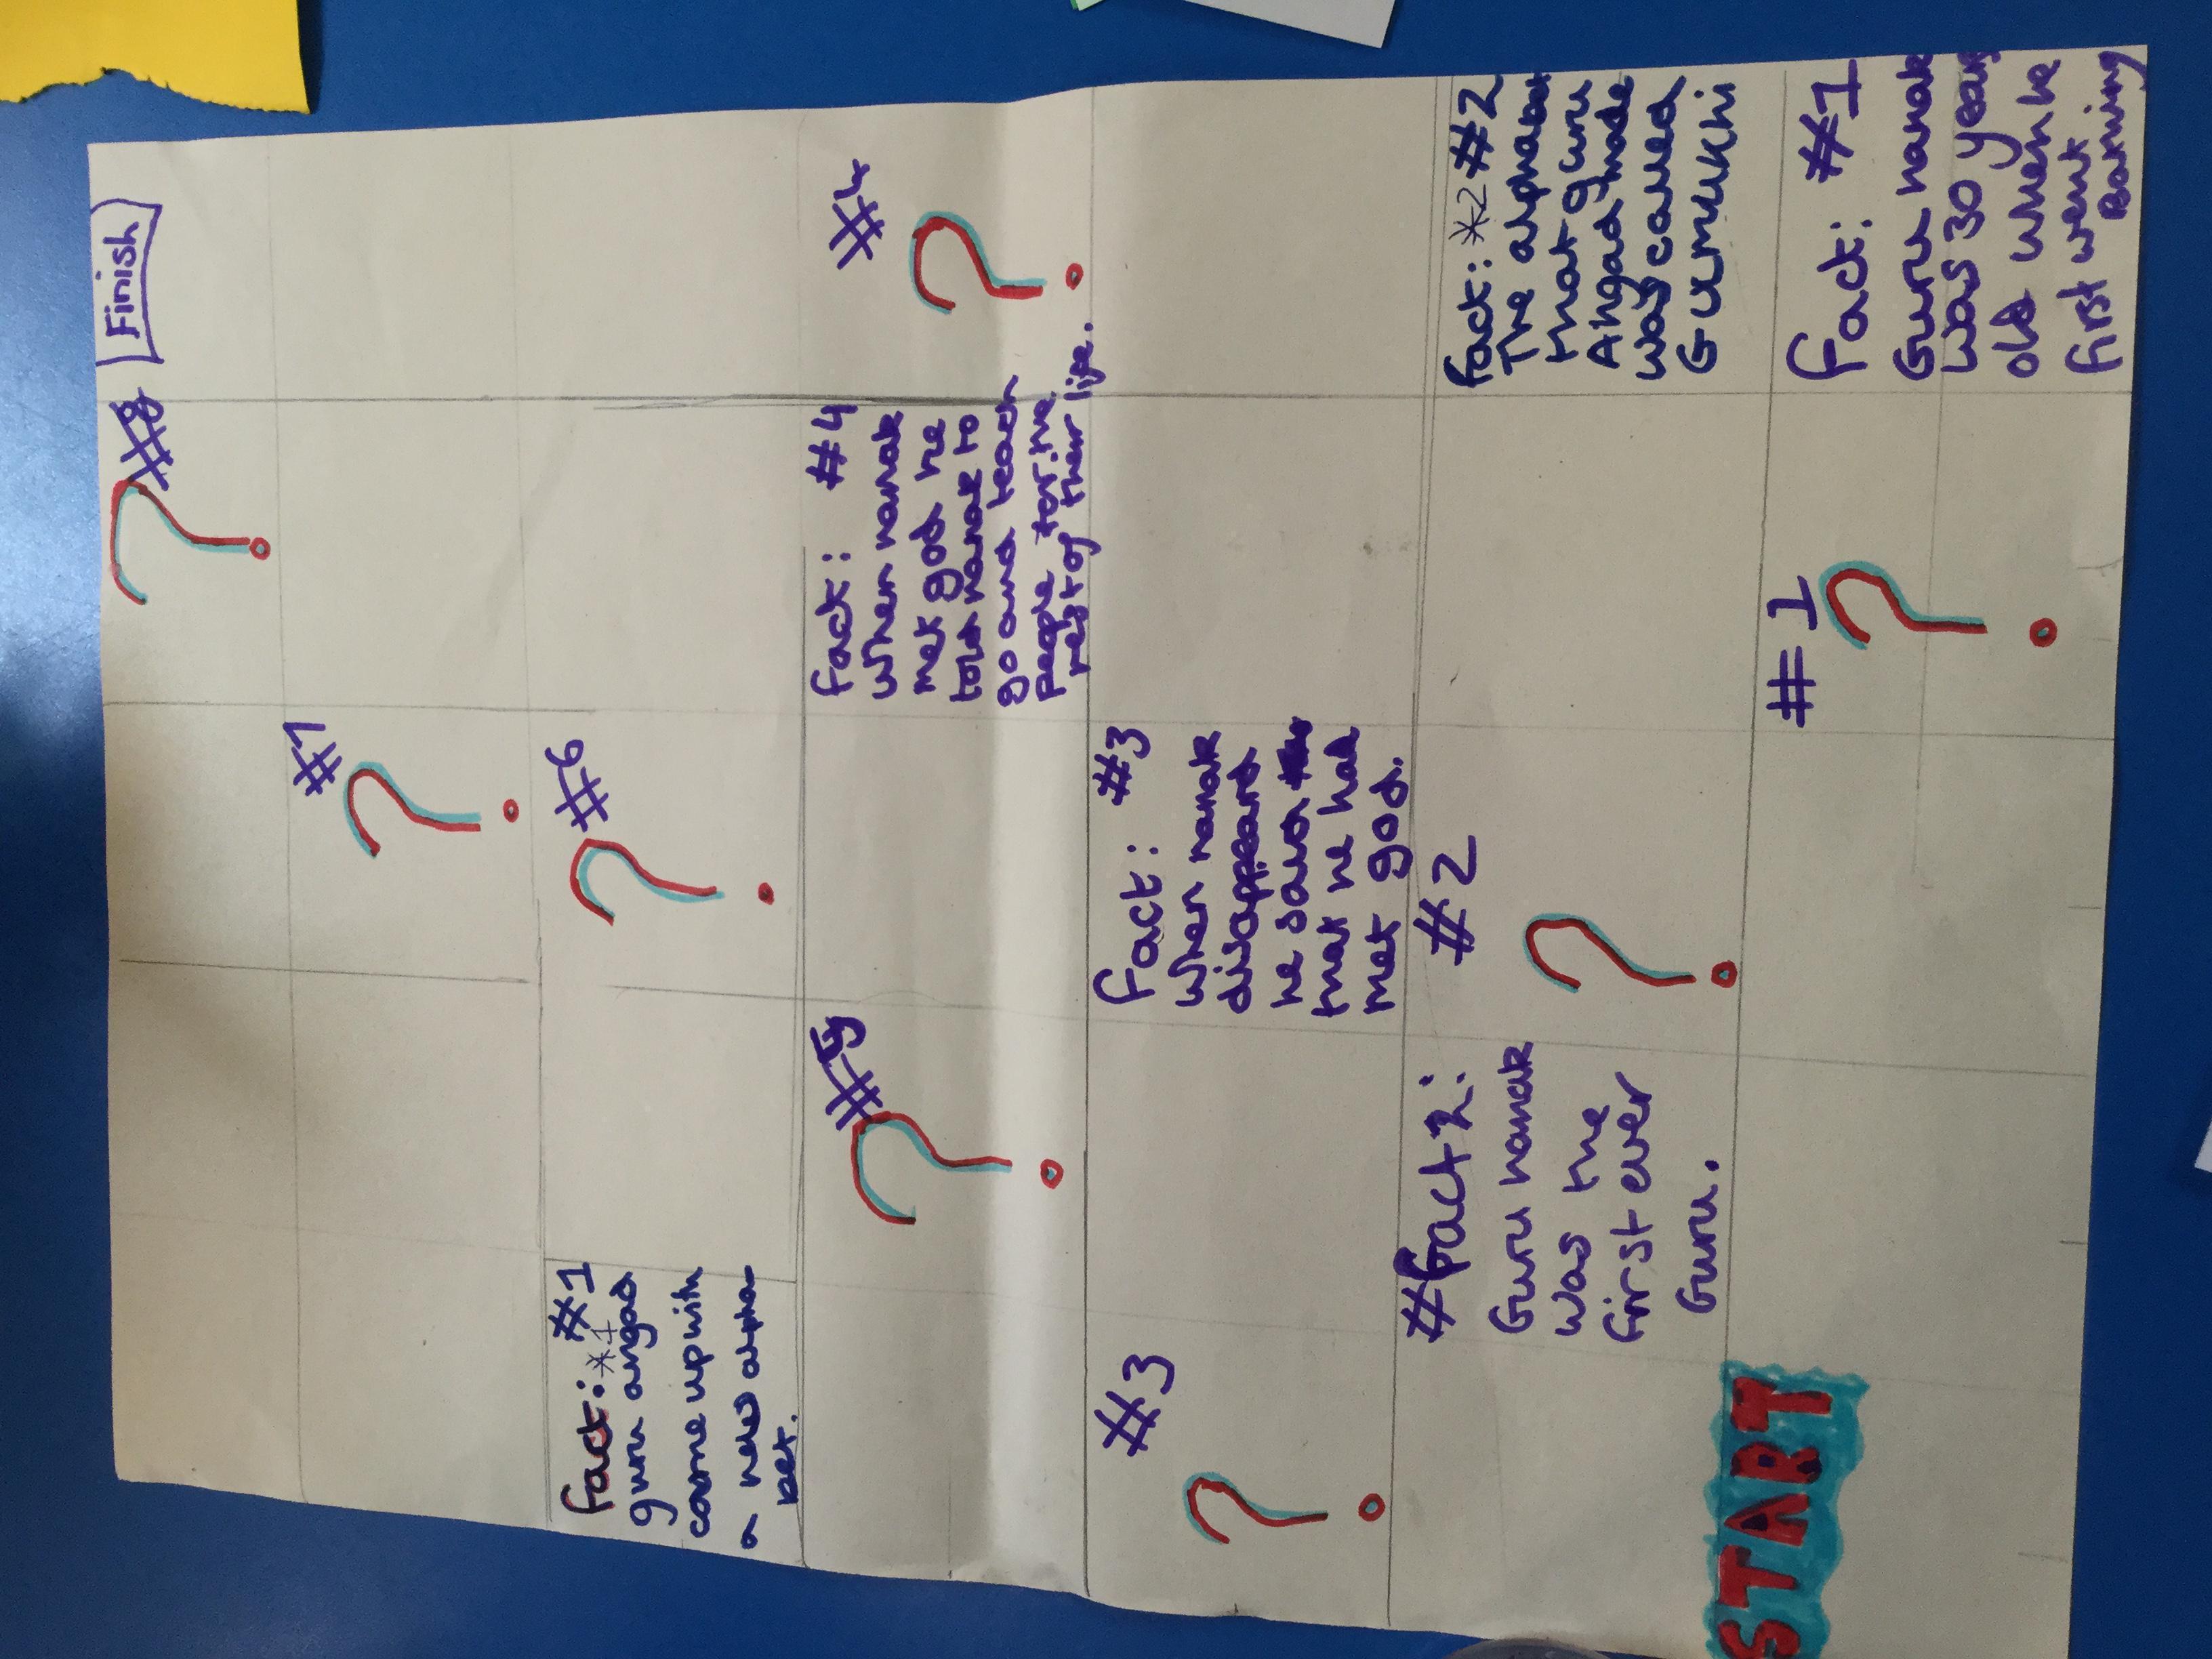 #8
?
Finish
#7
?
Fact: *1 #1
guru angad
came up with
a new alpha
bet.
#6
?
#5
?
Fact: #4
when nanak
met god he
told nanak to
go and teach
people for the
rest of their life.
#4
?
#3
?
Fact: #3
when nanak
disappeard
he
that he had
met god.
#Fact 2:
Guru nanak
was the
first ever
Guru.
#2
?
Fact: *2 #2
The alphabet
that guru
Angad made
was called
Gurmukhi
START
#1
?
Fact: #1
Guru nanak
was 30 years
old when he
first went